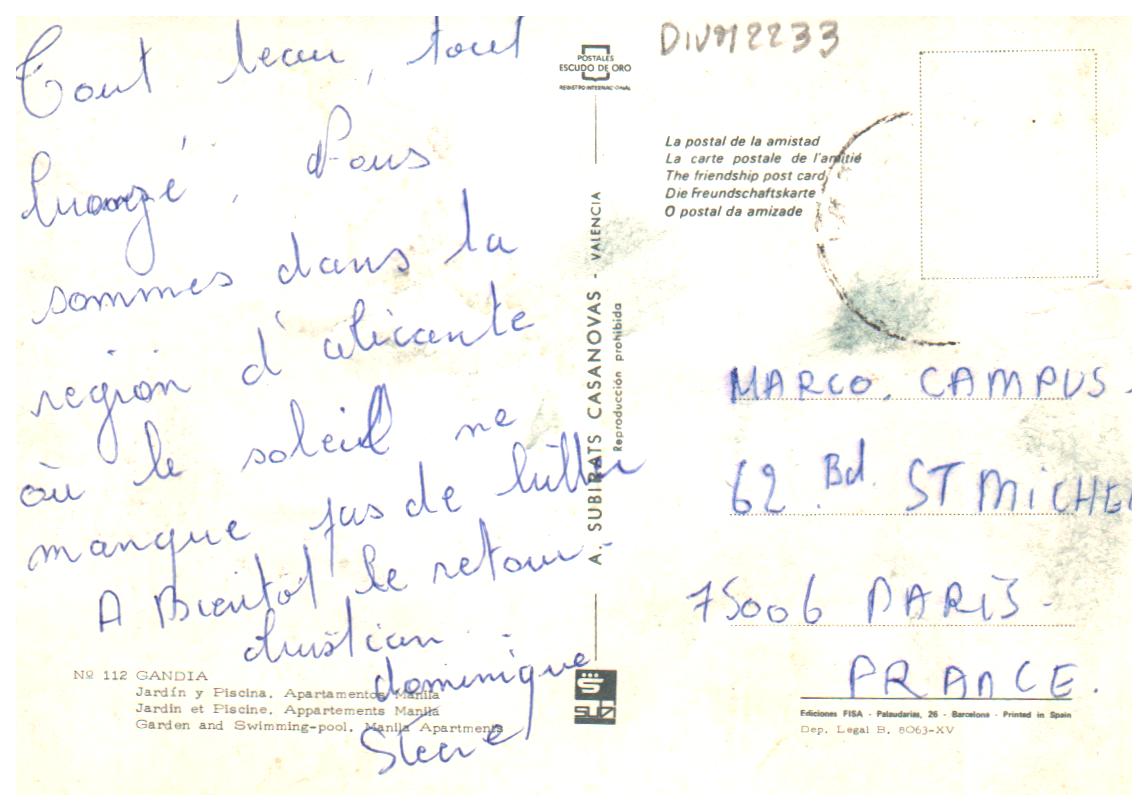 Tout beau, tout
bronzé. Nous
sommes dans la
région d'alicante
où le soleil ne
manque pas de briller
A Bientôt le retour.
christian
dominique
Steeve
Nº 112 GANDIA
Jardín y Piscina, Apartamentos Manila
Jardin et Piscine, Appartements Manila
Garden and Swimming-pool, Manila Apartments
POSTALES
ESCUDO DE ORO
REGISTRO INTERNACIONAL
A. SUBIRATS CASANOVAS - VALENCIA
Reproducción prohibida
DIVM2233
La postal de la amistad
La carte postale de l'amitié
The friendship post card
Die Freundschaftskarte
O postal da amizade
MARCO. CAMPUS.
62 Bd. ST MICHEL
75006 PARIS.
FRANCE.
Ediciones FISA - Palaudarias, 26 - Barcelona - Printed in Spain
Dep. Legal B. 8063-XV